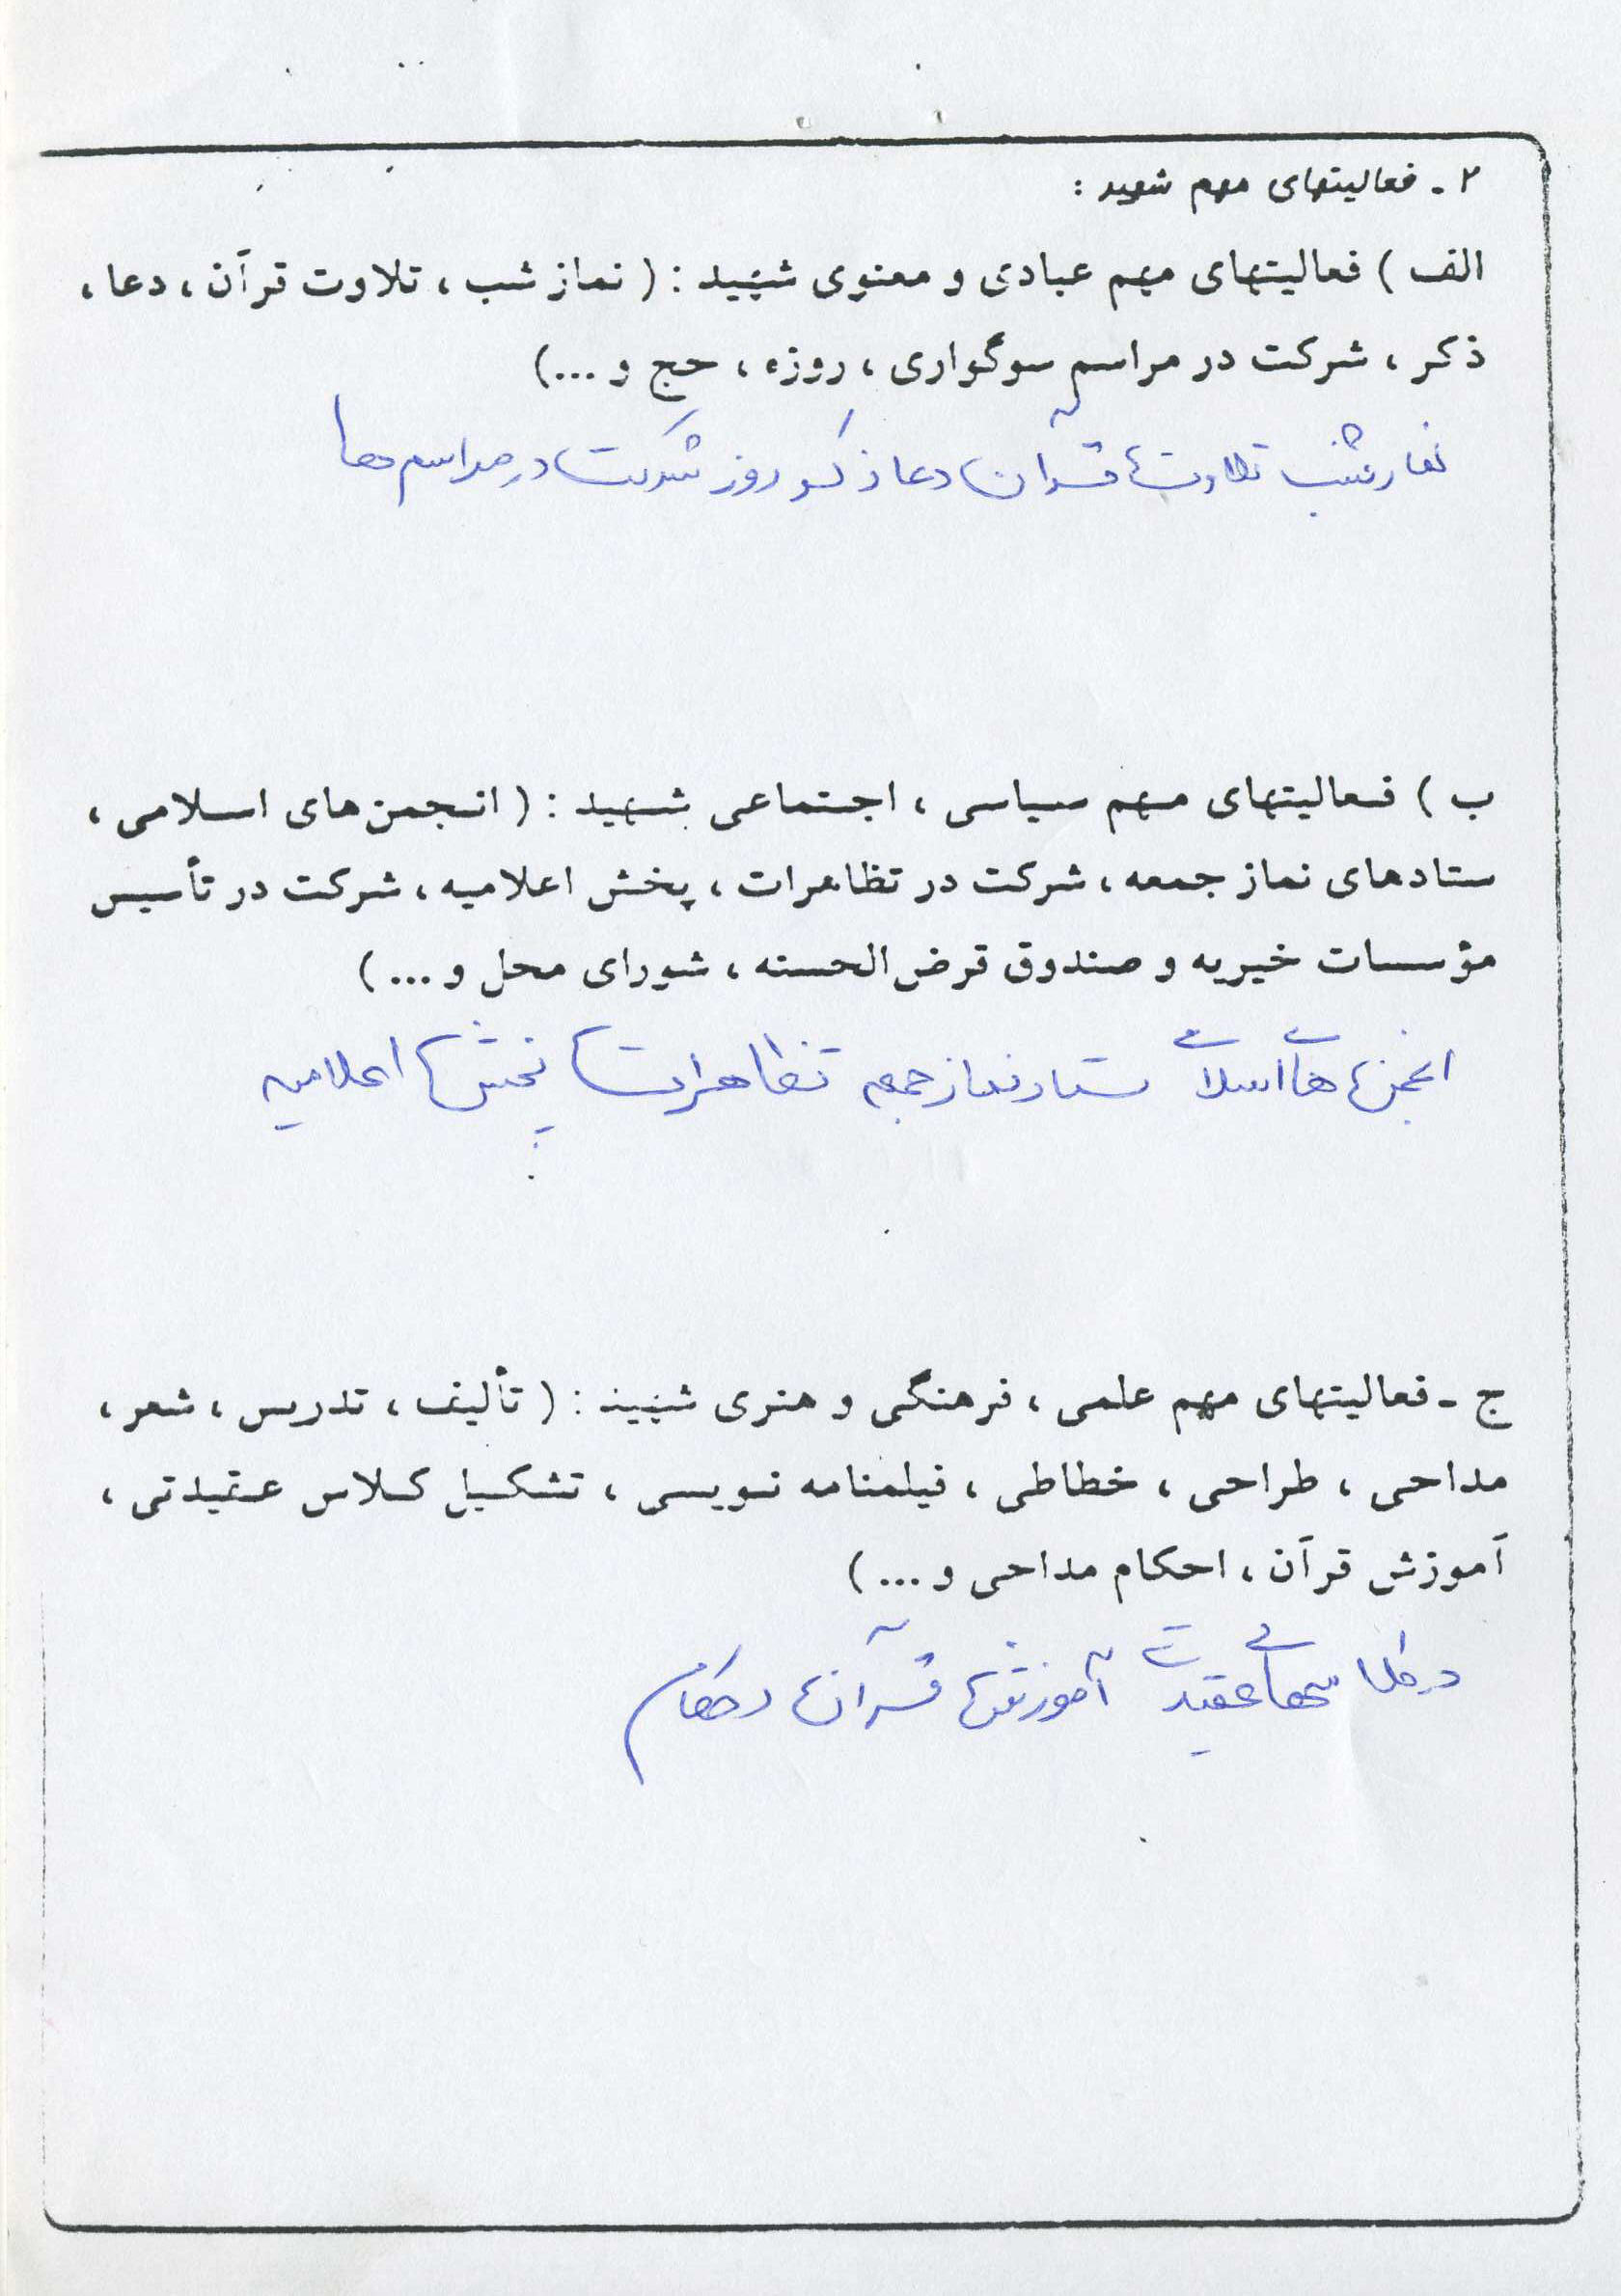 ۲ - فعالیتهای مهم شهید :
الف ) فعالیتهای مهم عبادی و معنوی شهید : ( نماز شب ، تلاوت قرآن ، دعا ،
ذکر ، شرکت در مراسم سوگواری ، روزه ، حج و ...)
نماز شب تلاوت قرآن دعا ذکر روزه شرکت در مراسم ها
ب ) فعالیتهای مهم سیاسی ، اجتماعی شهید : ( انجمن های اسلامی ،
ستادهای نماز جمعه ، شرکت در تظاهرات ، پخش اعلامیه ، شرکت در تأسیس
مؤسسات خیریه و صندوق قرض الحسنه ، شورای محل و ... )
انجمن های اسلامی ستاد نماز جمعه تظاهرات پخش اعلامیه
ج - فعالیتهای مهم علمی ، فرهنگی و هنری شهید : ( تألیف ، تدریس ، شعر ،
مداحی ، طراحی ، خطاطی ، فیلمنامه نویسی ، تشکیل کلاس عقیدتی ،
آموزش قرآن ، احکام مداحی و ... )
در کلاسهای عقیدتی آموزش قرآن احکام